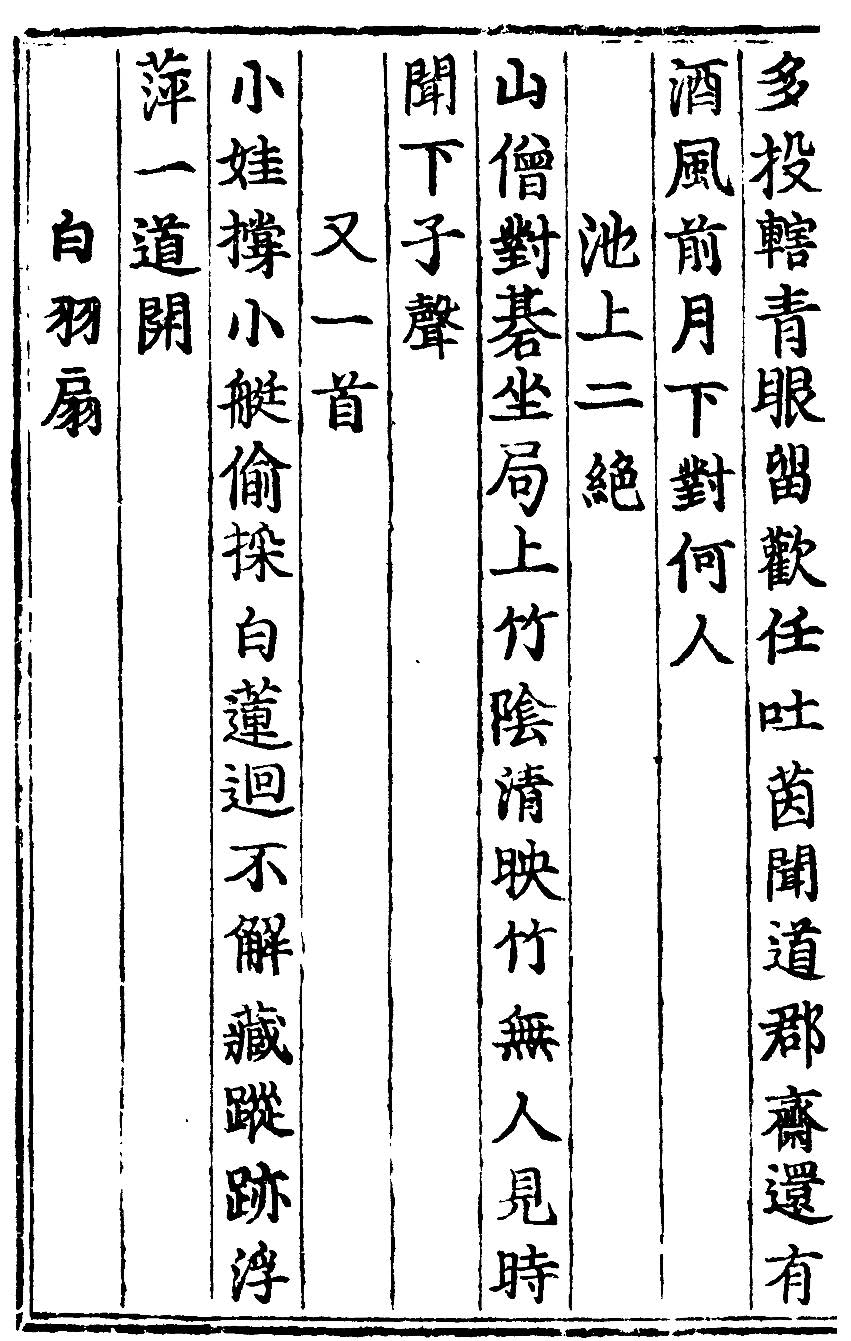 多投轄青眼留歡任吐茵聞道郡齋還有
酒風前月下對何人
池上二絕
山僧對碁坐局上竹陰清映竹無人見時
聞下子聲
又一首
小娃撐小艇偷採白蓮迴不解藏蹤跡浮
萍一道開
白羽扇